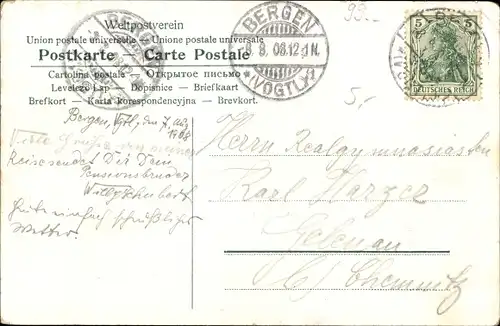 93.-
Weltpostverein
Union postale universelle — Unione postale universale
Postkarte — Carte Postale
Cartolina postale — Открытое письмо
Levelező Lap — Dopisnice — Briefkaart
Brefkort — Karta korespondencyjna — Brevkort.
BERGEN
8.8.08.12-1N.
*(VOGTL.)
5 5
DEUTSCHES REICH
5,-
Bergen, Vgtl., den 7. Aug.
1908
Viele Grüße von meiner
Reise sendet Dir Dein
Pensionsbruder
Willy Schubert
Heute einfach scheußliches
Wetter.
Herrn Realgymnasiasten
Karl Harzer
Gelenau
b/ Chemnitz